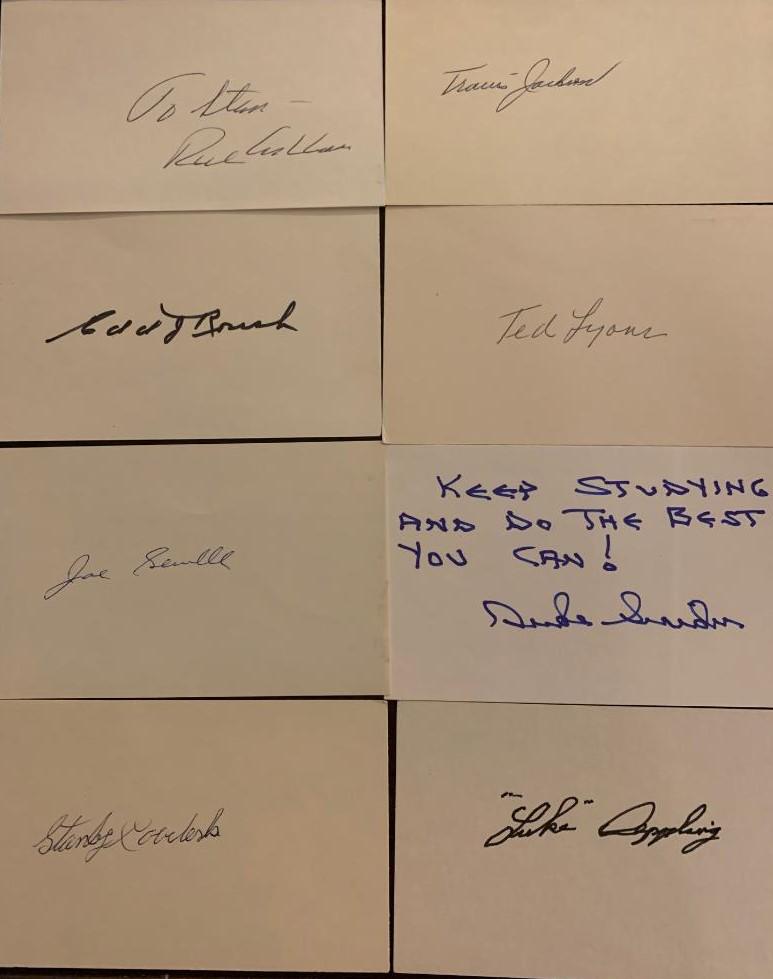 To Stan -
Travis Jackson
Edd J Roush
Ted Lyons
Joe Sewell
KEEP STUDYING
AND DO THE BEST
YOU CAN!
Duke Snider
Stanley Coveleski
"Luke" Appling